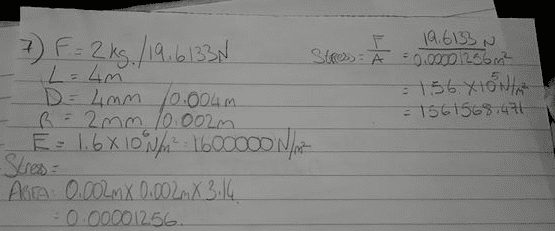 7) F = 2kg. / 19.6133N
L = 4m
D = 4mm / 0.004m
R = 2mm / 0.002m
E = 1.6 × 10⁶ N/m² = 1600000 N/m²
Stress =
AREA: 0.002m × 0.002m × 3.14
= 0.00001256
Stress = F/A = 19.6133 N / 0.00001256 m²
= 1.56 × 10⁵ N/m²
= 1561568.471